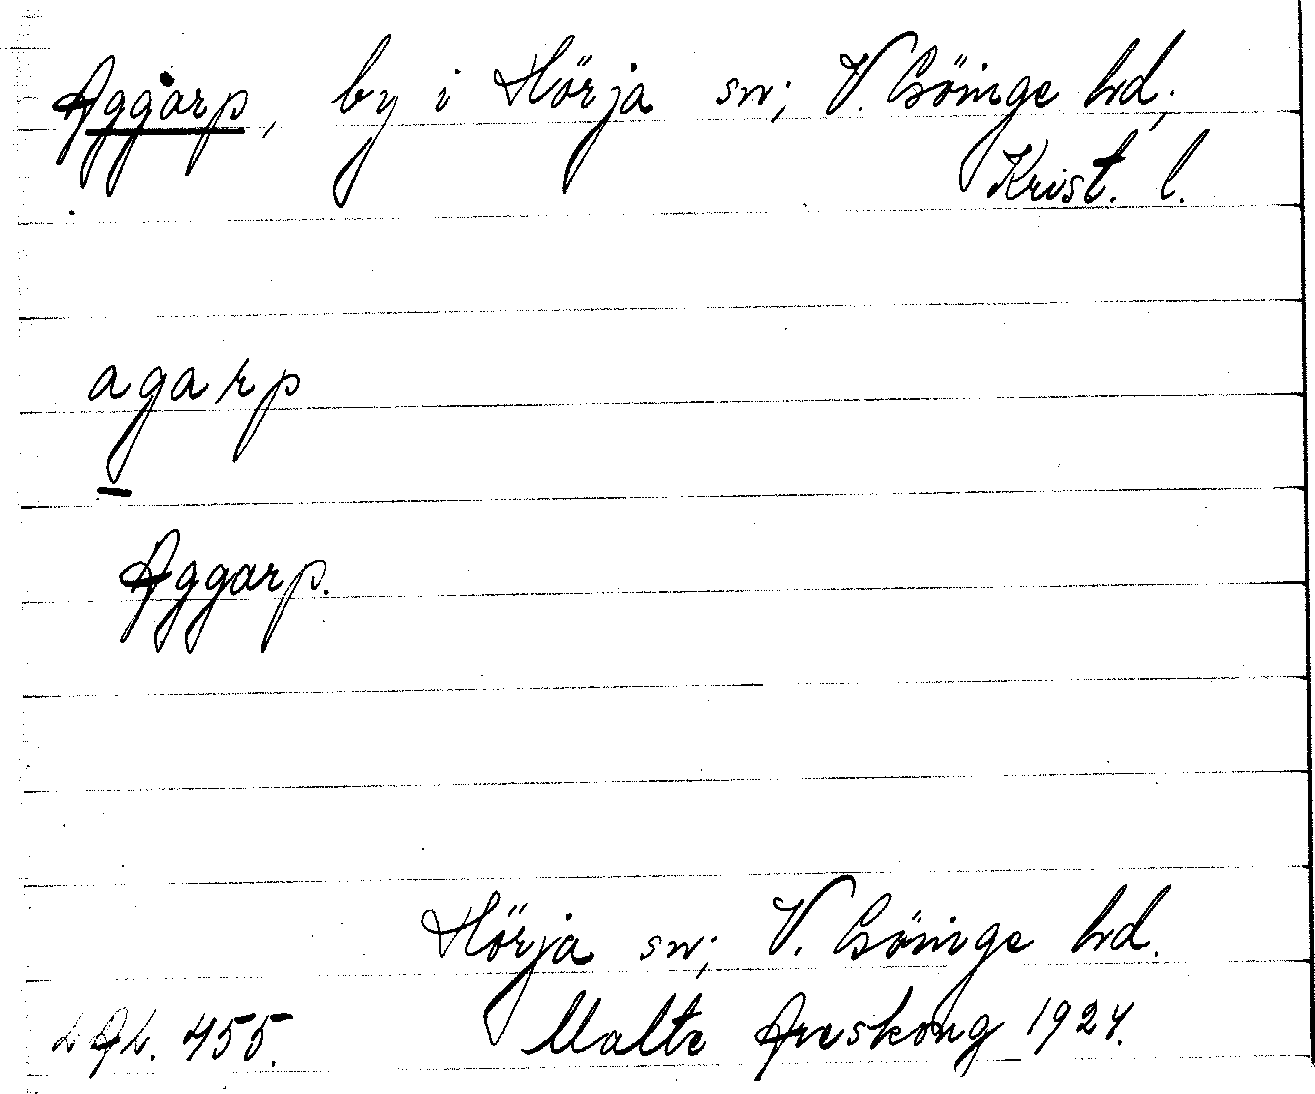 Aggarp, by i Hörja sn; V. Göinge hd.
Krist. l.
agarp
Aggarp.
Hörja sn; V. Göinge hd.
LAL. 455. Malte Areskoug 1924.